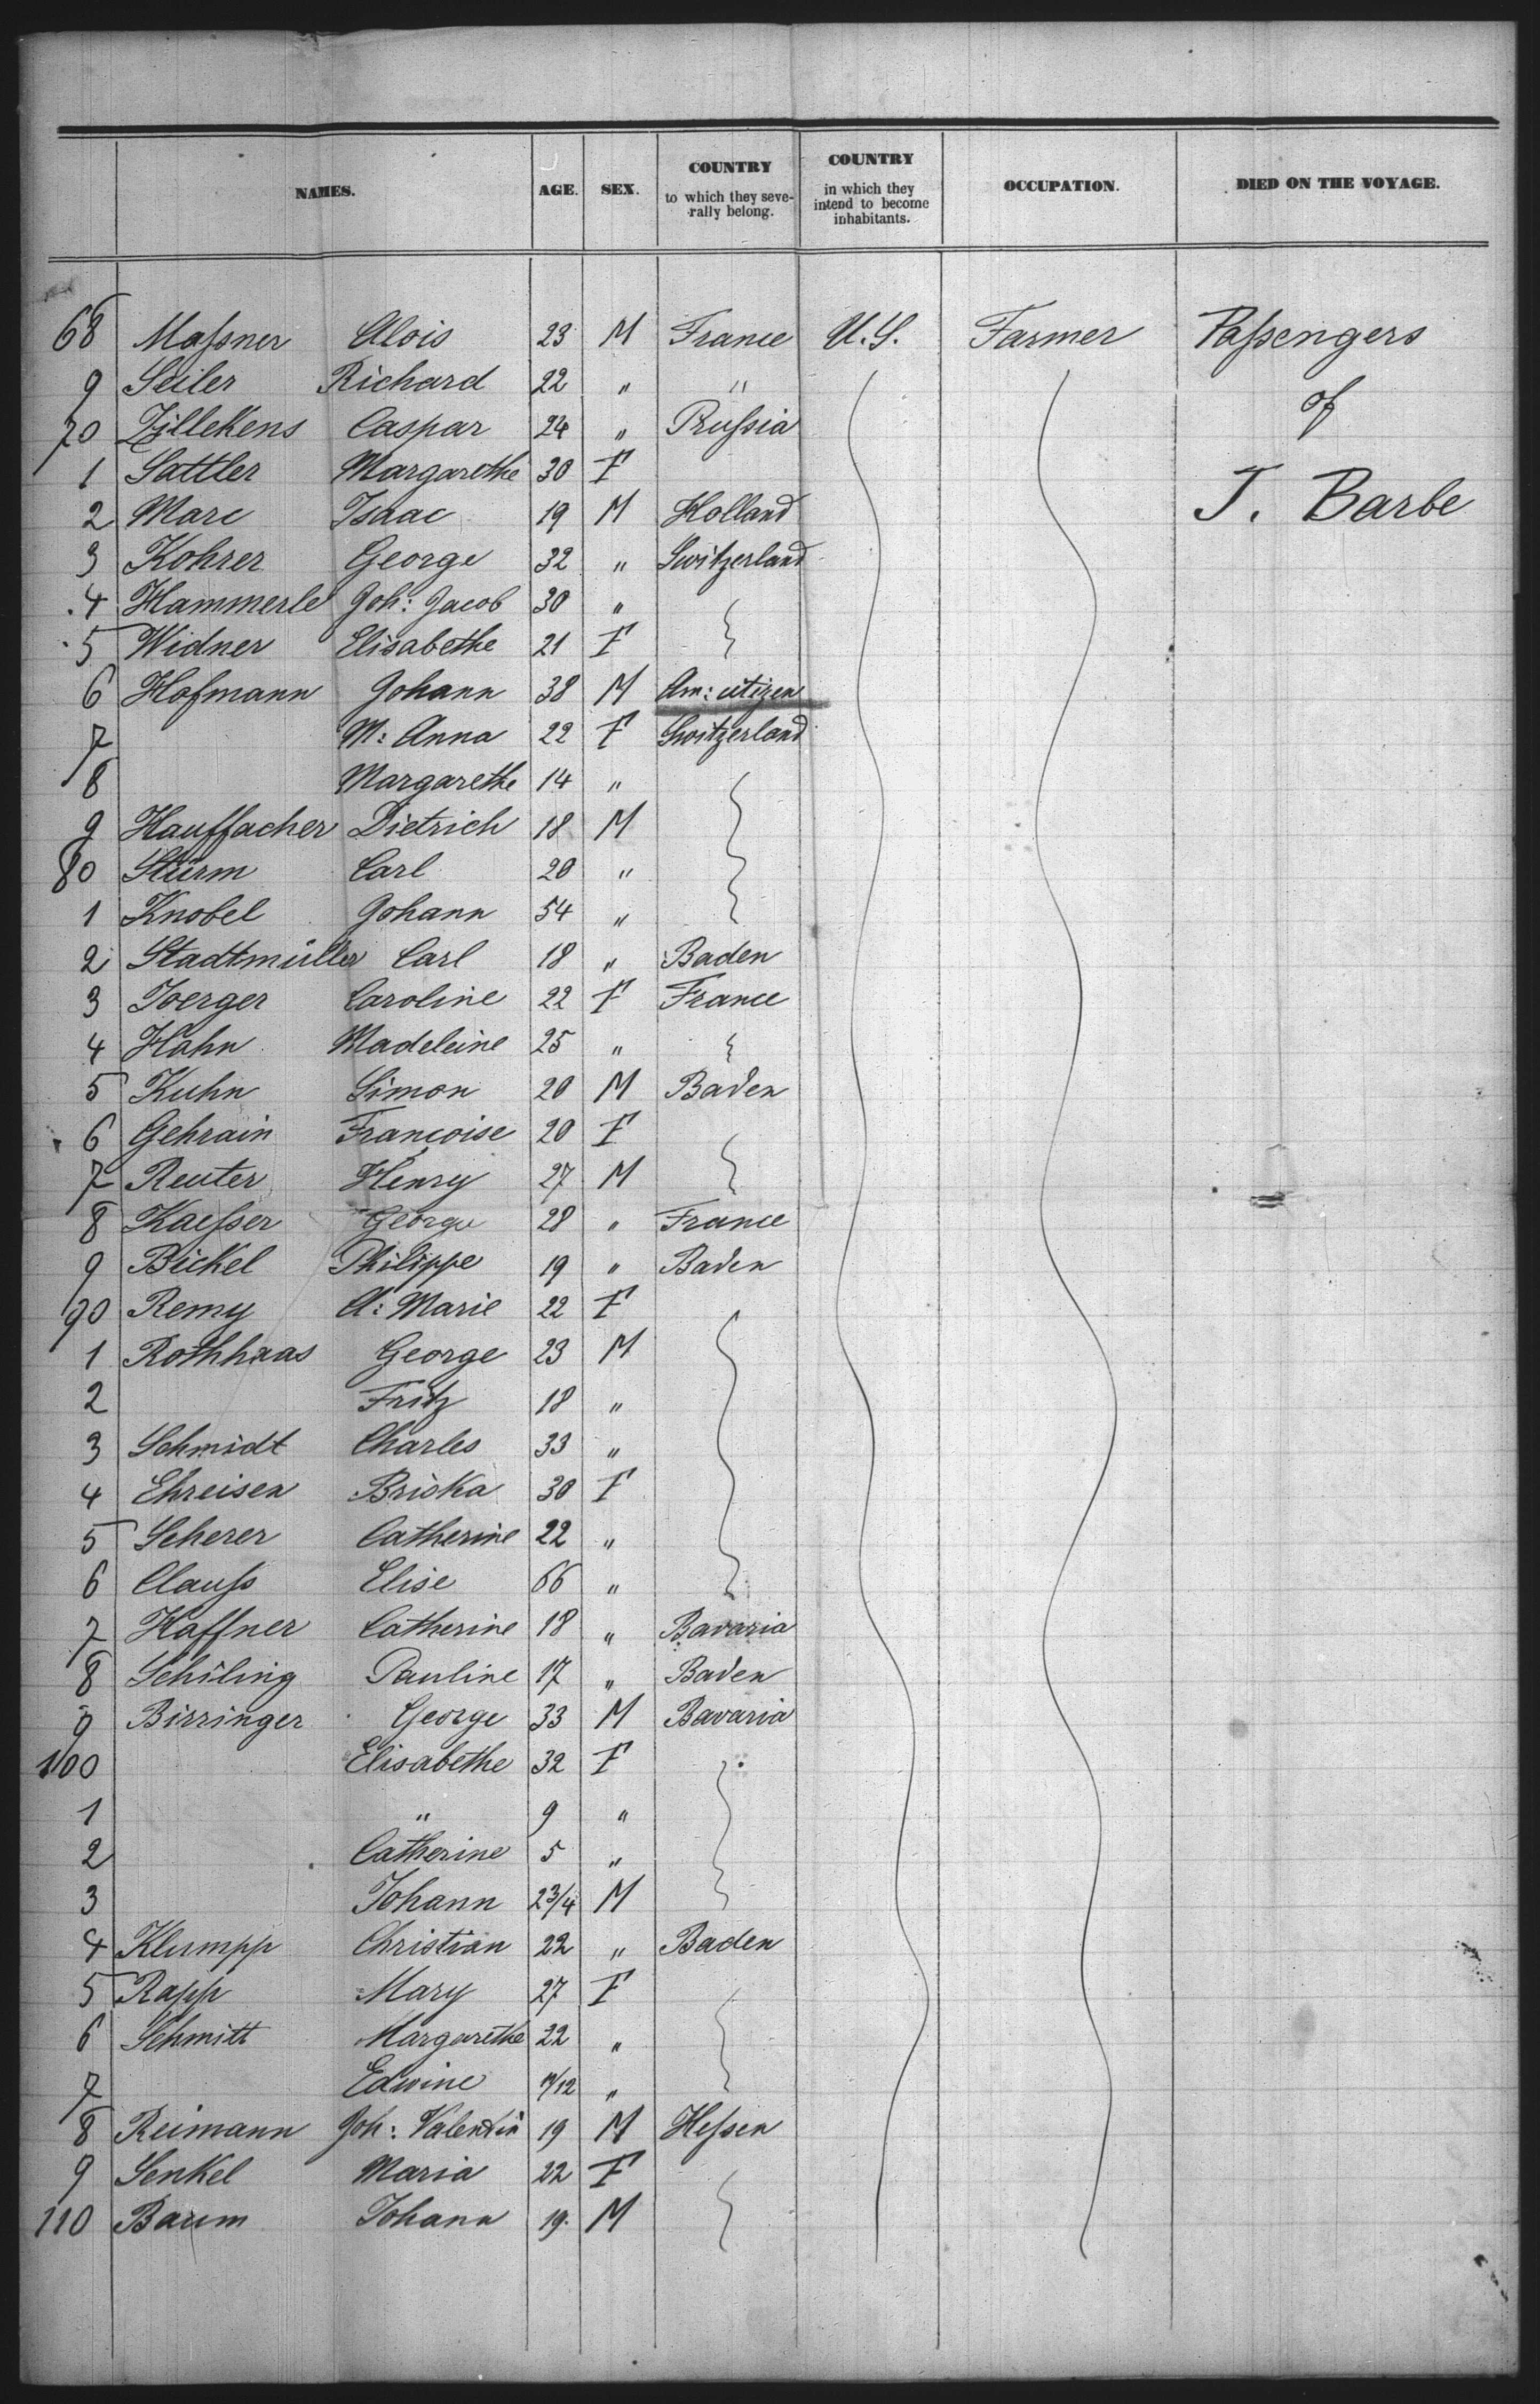 NAMES. AGE. SEX. COUNTRY to which they seve-rally belong. COUNTRY in which they intend to become inhabitants. OCCUPATION. DIED ON THE VOYAGE.
68 Maſsner Alois 23 M France U.S. Farmer Paſsengers
9 Seiler Richard 22 " " of
70 Zillekens Caspar 24 " Pruſsia
1 Sattler Margarethe 30 F J. Barbe
2 Marc Isaac 19 M Holland
3 Kohrer George 32 " Switzerland
4 Hammerle Joh: Jacob 30 "
5 Widner Elisabethe 21 F
6 Hofmann Johann 38 M Am: citizen
7 M: Anna 22 F Switzerland
8 Margarethe 14 "
9 Hauffacher Dietrich 18 M
80 Sturm Carl 20 "
1 Knobel Johann 54 "
2 Stadtmüller Carl 18 " Baden
3 Joerger Caroline 22 F France
4 Hahn Madeleine 25 "
5 Kuhn Simon 20 M Baden
6 Gehrain Françoise 20 F
7 Reuter Henry 27 M
8 Kaeſser George 28 " France
9 Bickel Philippe 19 " Baden
90 Remy A: Marie 22 F
1 Rothhaas George 23 M
2 Fritz 18 "
3 Schmidt Charles 33 "
4 Ehreisen Briska 30 F
5 Scherer Catherine 22 "
6 Clauſs Elise 66 "
7 Haffner Catherine 18 " Bavaria
8 Schiling Pauline 17 " Baden
9 Birringer George 33 M Bavaria
100 Elisabethe 32 F
1 " 9 "
2 Catherine 5 "
3 Johann 2 3/4 M
4 Klumpp Christian 22 " Baden
5 Rapp Mary 27 F
6 Schmitt Margarethe 22 "
7 Edwine "
8 Reimann Joh: Valentin 19 M Heſsen
9 Senkel Maria 22 F
110 Baum Johann 19. M